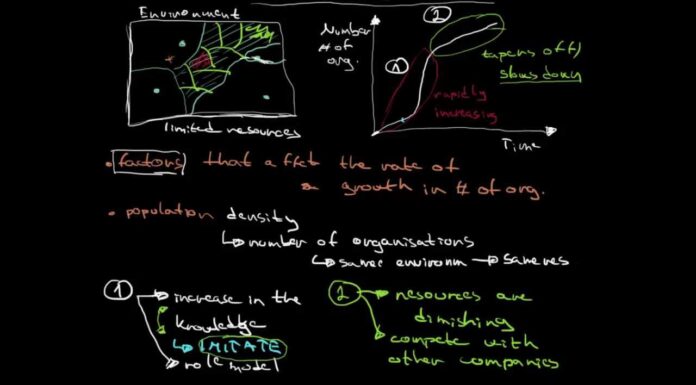 Environment
limited resources
Number
# of
org.
Time
1
2
rapidly
increasing
tapers off/
slows down
• factors that affect the rate of
growth in # of org.
• population density
↳ number of organisations
↳ same environm → same res
1 → increase in the
knowledge
↳ IMITATE
→ role model
2 → resources are
dimishing
→ compete with
other companies